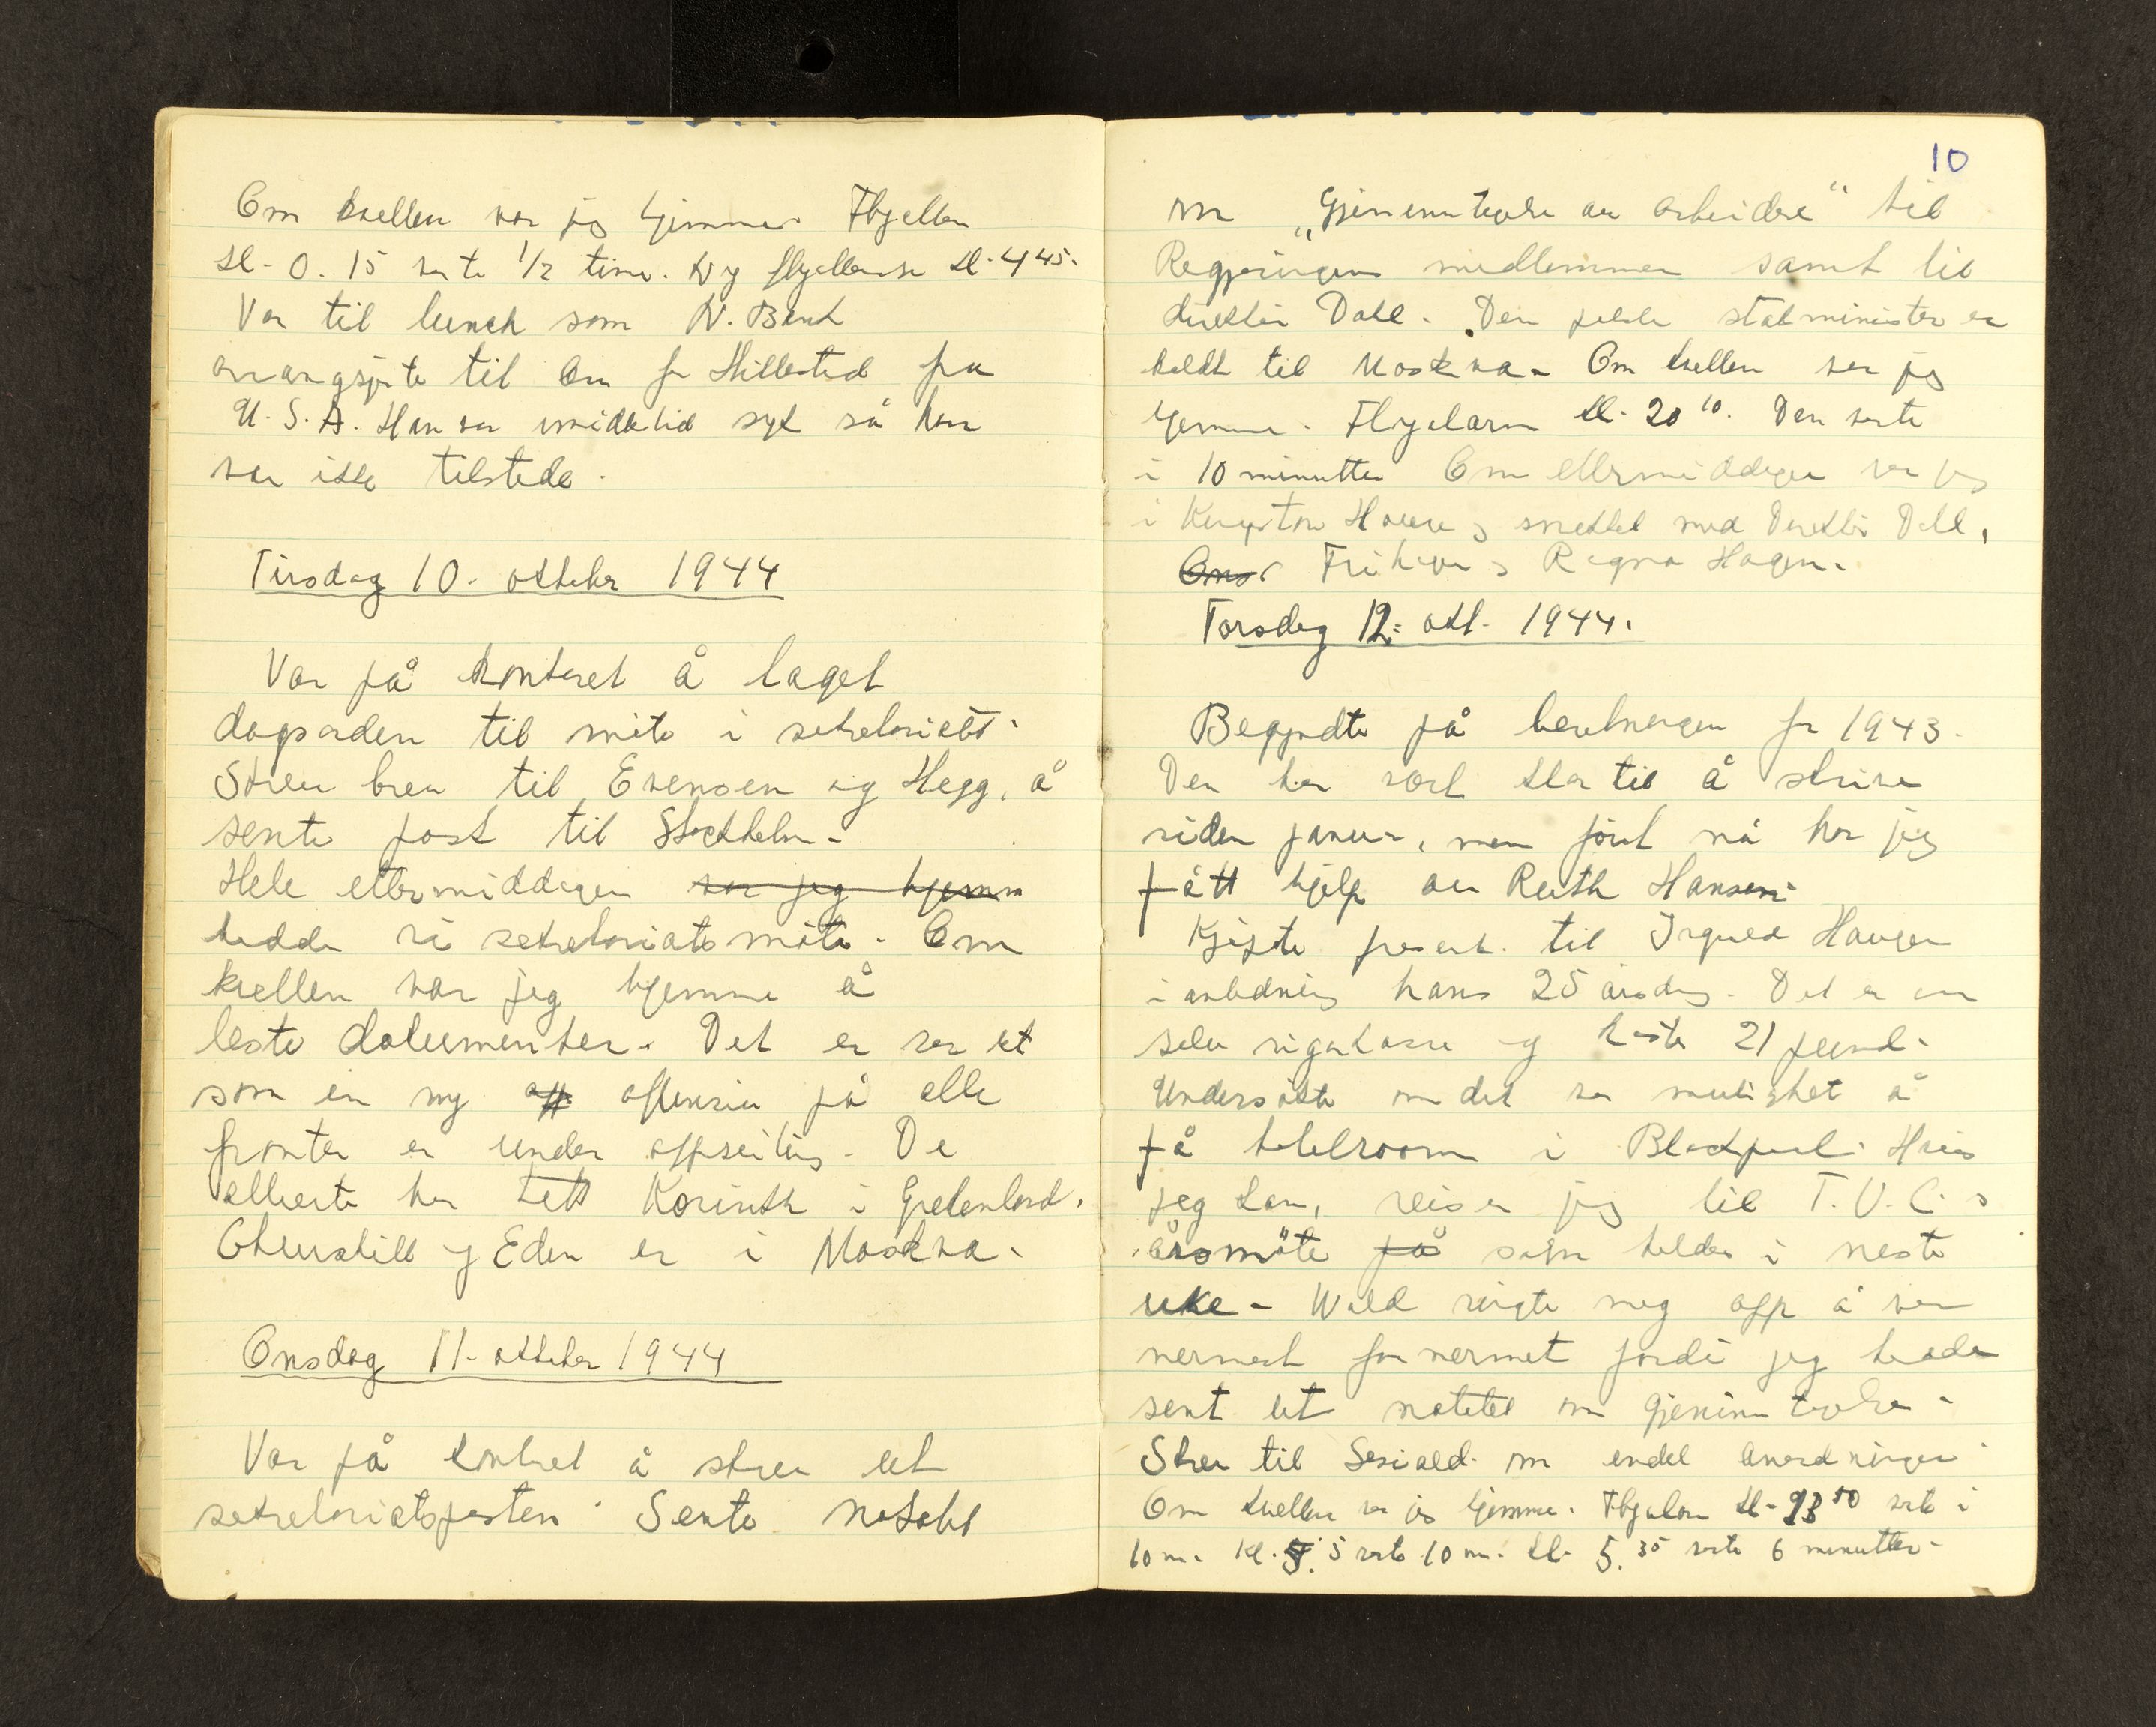 Om kvellen var jeg hjemme. Flyallarm
kl. 0.15 varte 1/2 time. Ny flyallarm kl. 4 45.
Var til lunch som N. Bank
arrangsjerte til ære for Hillestad fra
U.S.A. Han var imidletid syk så han
var ikke tilstede.
Tirsdag 10. oktober 1944
Var på kontoret å laget
dagsorden til møte i sekretariatet.
Skrev brev til Evensen og Hegg, å
sente post til Stockholm.
Hele ettermiddagen var jeg hjemm
hadde vi sekretariatsmøte. Om
kvellen var jeg hjemme å
leste dokumenter. Det er ser ut
som en ny off offensiv på alle
fronter er under oppseiling. De
allierte har tatt Korinth i Grekenland.
Churchill og Eden er i Moskva.
Onsdag 11. oktober 1944
Var på kontoret å skrev ut
sekretariatsposten. Sente notatet
10
om "Gjeninntagelse av arbeidere" til
Regjeringens medlemmer samt til
direktør Dahl. Den polske statminister er
kaldt til Moskva. Om kvellen var jeg
hjemme. Flyalarm kl. 20 10. Den varte
i 10 minutter Om ettermiddagen var jeg
i Kingston House og snakket med Direktør Dahl,
Ons. Frihagen og Ragna Hagen.
Torsdag 12. okt. 1944.
Begyndte på beretningen for 1943.
Den har vært klar til å skrive
siden januar, men først nå har jeg
fått hjelp av Ruth Hansen.
Kjøpte present til Ingvald Haugen
i anledning hans 25 årsdag. Det er en
sølv sigarkasse og koste 21 pund.
Undersøkte om det var mulighet å
få hotelroom i Blackpool. Hvis
jeg kan, reiser jeg til T.U.C.s
årsmøte på som holdes i neste
uke. Wold ringte meg opp å var
nermest fornermet fordi jeg hadde
sent ut notatet om gjeninntagelse.
Skrev til Sosiald. om endel anordninger.
Om kvellen var jeg hjemme. Flyalarm kl. 23 50 varte i
10 m. Kl. 5. 5 varte 10 m. kl. 5.35 varte 6 minutter.